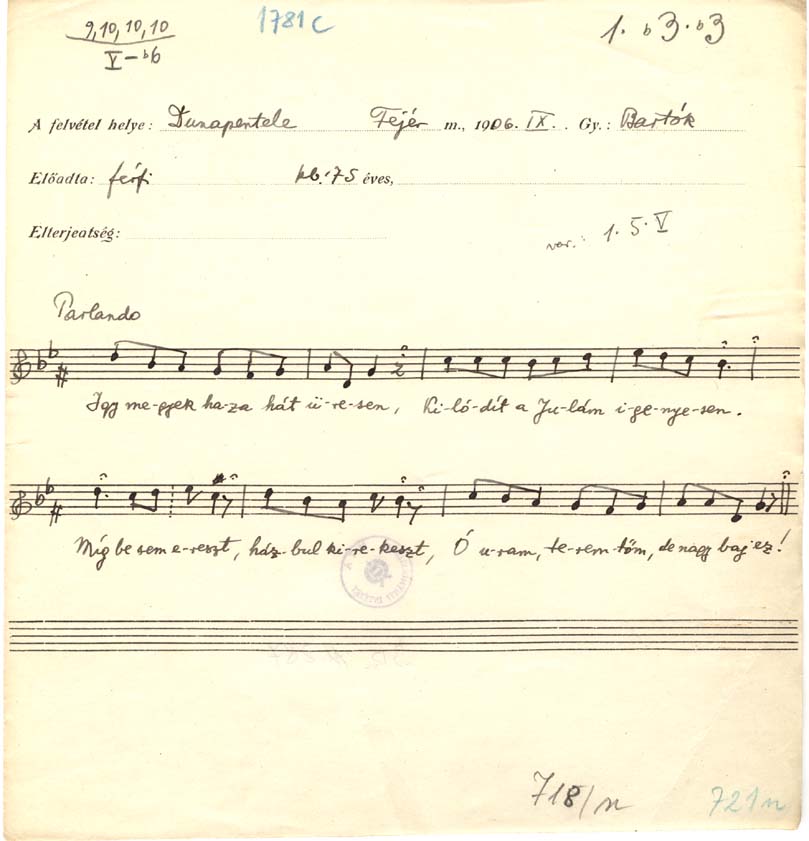 9,10,10,10 1781 c 1. b3. b3
V – b6
A felvétel helye: Dunapentele Fejér m., 1906. IX. . Gy.: Bartók
Előadta: férfi kb. 75 éves,
Elterjedtség:
var.: 1. 5. V
Parlando
Igy me-gyek ha-za hát ü-re-sen, Ki-ló-dít a Ju-lám i-ge-nye-sen.
Míg be sem e-reszt, ház-bul ki-re-keszt, Ó u-ram, te-rem-tőm, de nagy baj ez!
718/n 721n